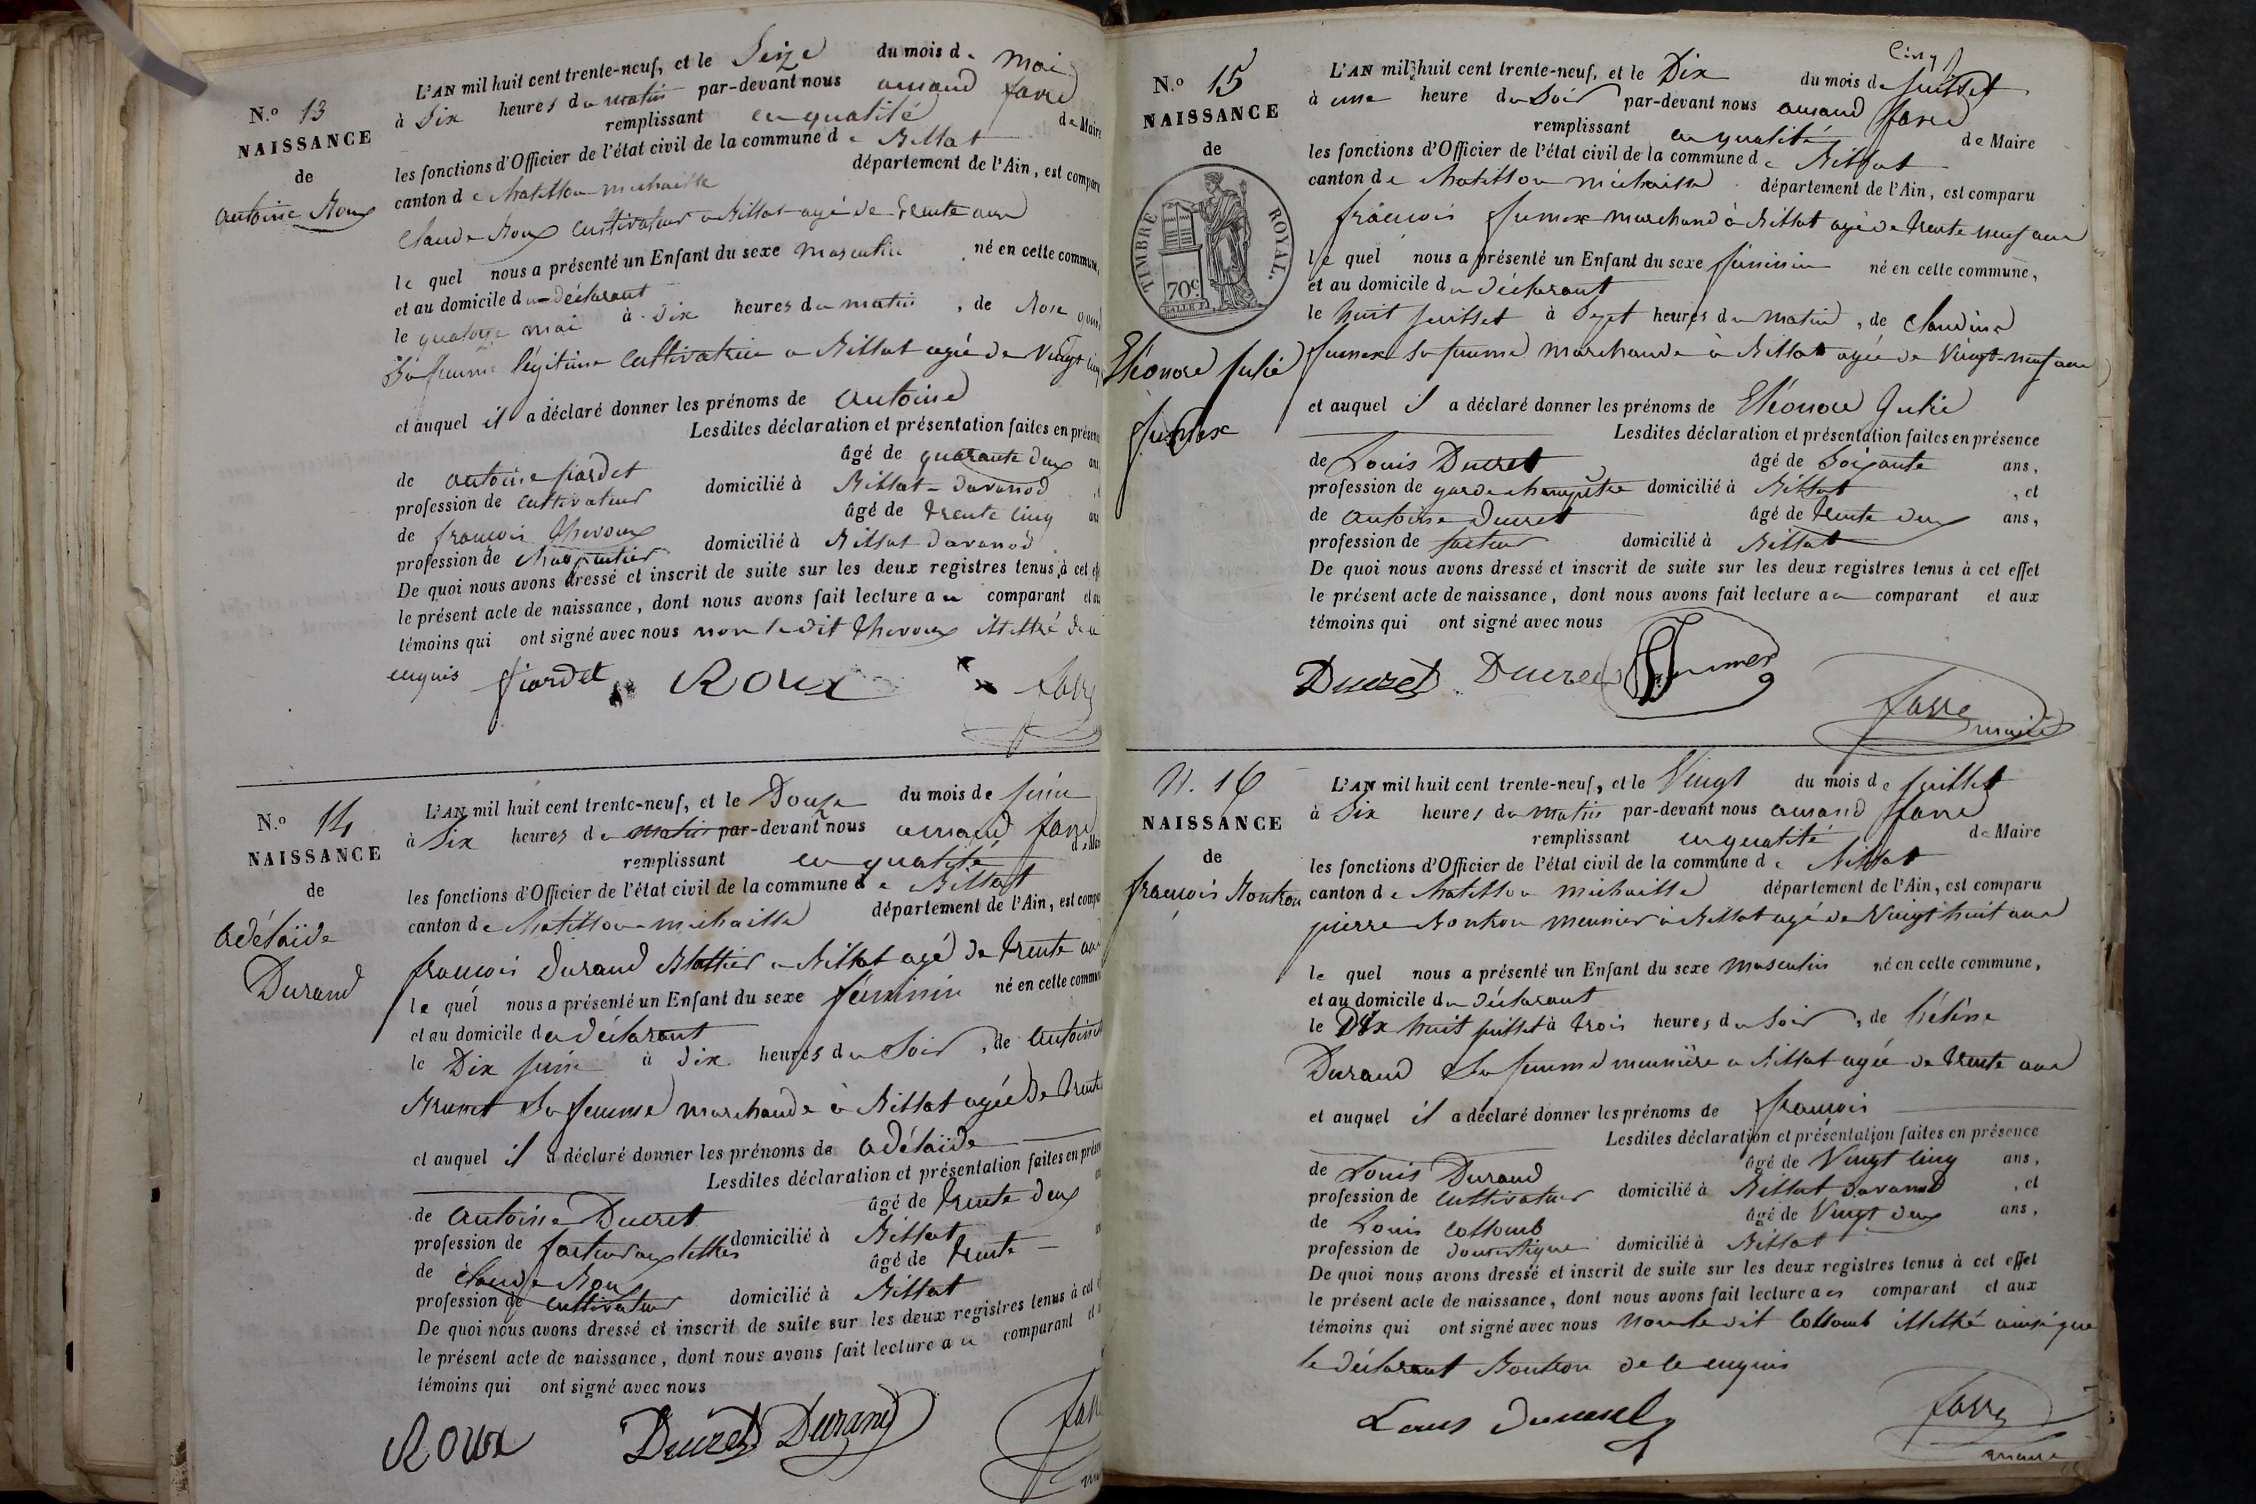 N.o 13
NAISSANCE
de
antoine Roux
L'AN mil huit cent trente-neuf, et le Seize du mois de mai
à Dix heures du matin par-devant nous amand favre
remplissant en qualité de Maire
les fonctions d'Officier de l'état civil de la commune de Billiat
canton de Chatillon michaille département de l'Ain, est comparu
Claude Roux Cultivateur à Billiat agé de trente ans
le quel nous a présenté un Enfant du sexe masculin né en cette commune,
et au domicile du Déclarant
le quatorze mai à Dix heures du matin, de Rose
Sa femme légitime Cultivatrice à Billiat agée de Vingt cinq
et auquel il a déclaré donner les prénoms de antoine
Lesdites déclaration et présentation faites en présence
de antoine fiardet âgé de quarante deux ans
profession de Cultivateur domicilié à Billiat-Davanod
de françois thevoux âgé de trente cinq ans
profession de charpentier domicilié à Billiat Davanod
De quoi nous avons dressé et inscrit de suite sur les deux registres tenus à cet eff
le présent acte de naissance, dont nous avons fait lecture au comparant et au
témoins qui ont signé avec nous non le dit thevoux illettré de ce
enquis fiardet Roux favre
N.o 14
NAISSANCE
de
adélaïde
Durand
L'AN mil huit cent trente-neuf, et le Douze du mois de juin
à Six heures du matin par-devant nous amand favre
remplissant en qualité de Maire
les fonctions d'Officier de l'état civil de la commune de Billiat
canton de Chatillon-michaille département de l'Ain, est compa
françois Durand Blattier à Billiat agé de trente ans
le quel nous a présenté un Enfant du sexe féminin né en cette commun
et au domicile du déclarant
le Dix juin à Dix heures du Soir, de antoine
Brunet Sa femme marchande à Billiat agée de trente
et auquel il a déclaré donner les prénoms de adélaïde
Lesdites déclaration et présentation faites en prése
de antoine Ducret âgé de trente deux
profession de facteur aux lettres domicilié à Billiat
de Claude Roux âgé de trente
profession de cultivateur domicilié à Billiat
De quoi nous avons dressé et inscrit de suite sur les deux registres tenus à cet
le présent acte de naissance, dont nous avons fait lecture au comparant et
témoins qui ont signé avec nous
Roux Ducret Durand favre
N.o 15
NAISSANCE
de
TIMBRE ROYAL.
70c
Eléonore julie
fumex
L'AN mil huit cent trente-neuf, et le Dix du mois de juillet
à une heure du Soir par-devant nous amand favre
remplissant en qualité de Maire
les fonctions d'Officier de l'état civil de la commune de Billiat
canton de Chatillon michaille département de l'Ain, est comparu
françois fumex marchand à Billiat agé de trente neuf ans
le quel nous a présenté un Enfant du sexe féminin né en cette commune,
et au domicile du déclarant
le huit juillet à Sept heures du matin, de Claudine
fumex Sa femme marchande à Billiat agée de Vingt-neuf ans
et auquel il a déclaré donner les prénoms de Eléonore Julie
Lesdites déclaration et présentation faites en présence
de Louis Ducret âgé de Soixante ans,
profession de garde champêtre domicilié à Billiat, et
de antoine Ducret âgé de trente deux ans,
profession de facteur domicilié à Billiat
De quoi nous avons dressé et inscrit de suite sur les deux registres tenus à cet effet
le présent acte de naissance, dont nous avons fait lecture au comparant et aux
témoins qui ont signé avec nous
Ducret Ducret fumex
favre
maire
N. 16
NAISSANCE
de
françois Boutron
L'AN mil huit cent trente-neuf, et le Vingt du mois de juillet
à Six heures du matin par-devant nous amand favre
remplissant en qualité de Maire
les fonctions d'Officier de l'état civil de la commune de Billiat
canton de Chatillon michaille département de l'Ain, est comparu
pierre Boutron meunier à Billiat agé de Vingt huit ans
le quel nous a présenté un Enfant du sexe masculin né en cette commune,
et au domicile du déclarant
le Dix huit juillet à trois heures du Soir, de hélène
Durand Sa femme meunière à Billiat agée de trente ans
et auquel il a déclaré donner les prénoms de françois
Lesdites déclaration et présentation faites en présence
de Louis Durand âgé de Vingt cinq ans,
profession de cultivateur domicilié à Billiat Davanod, et
de Louis Collomb âgé de Vingt deux ans,
profession de domestique domicilié à Billiat
De quoi nous avons dressé et inscrit de suite sur les deux registres tenus à cet effet
le présent acte de naissance, dont nous avons fait lecture au comparant et aux
témoins qui ont signé avec nous Non le dit Collomb illettré ainsi que
le déclarant Boutron de ce enquis
favre
maire